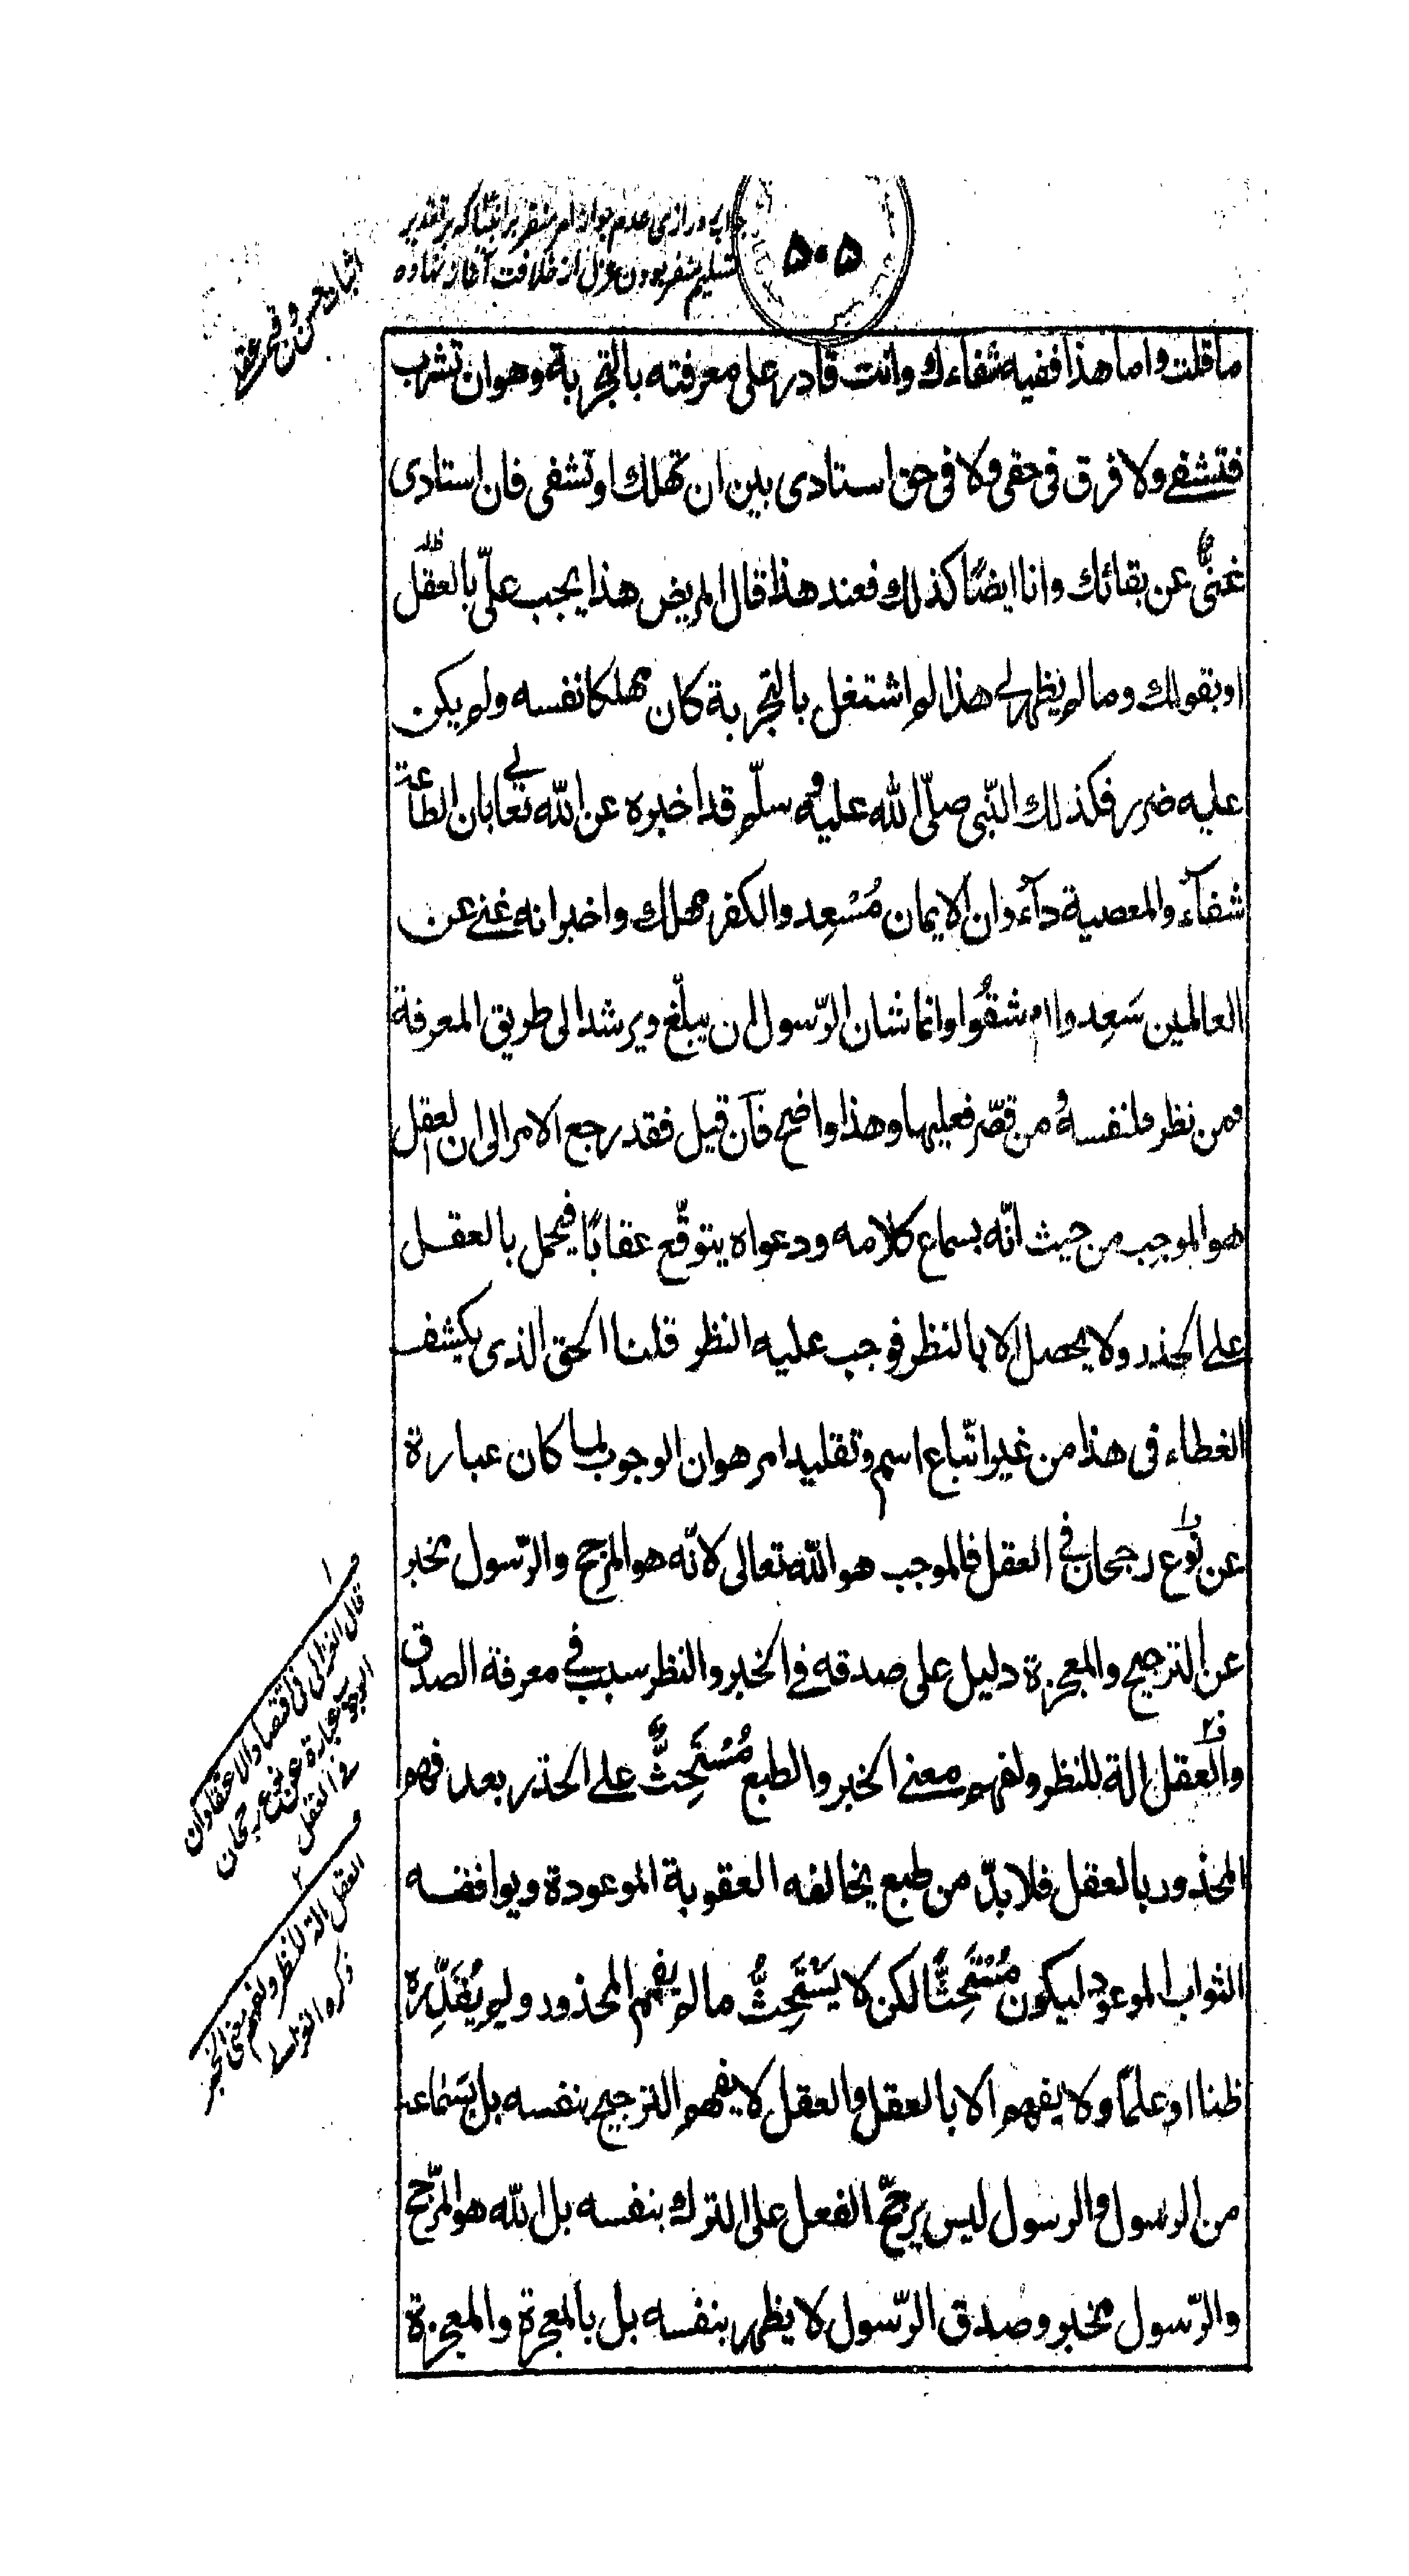 ۵۰۵
جواب رازی عدم جواز امر منفر بر انبیا که بر تقدیر
تسلیم منفر بودن عزل از خلافت آغاز نهاده
اثبات حسن و قبح عقلی
ما قلت واما هذا ففیه شفاءك وانت قادر علی معرفته بالتجربة وهو ان تشرب
فتشفی ولا فرق فی حقی ولا فی حق استادی بین ان تهلك او تشفی فان استادی
غنیٌّ عن بقائك وانا ایضًا كذلك فعند هذا قال المریض هذا یجب علیّ بالعقل
او بقولك وما لم یظهر لی هذا لم اشتغل بالتجربة كان مهلكا نفسه ولم یكن
علیه ضرر فكذلك النّبی صلّی الله علیه وسلّم قد اخبره عن الله تعالی بان الطاعة
شفآءٌ والمعصیة دآءٌ وان الایمان مُسْعِد والكفر مهلك واخبر انه غنی عن
العالمین سَعِدوا ام شقُوا وانما شان الرّسول ان یبلّغ ویرشد الی طریق المعرفة
فمن نظر فلنفسه ومن قصّر فعلیها وهذا واضح فآن قیل فقد رجع الامر الی ان العقل
هو الموجب من حیث انّه بسماع كلامه ودعواه یتوقّع عقابًا فیحمل بالعقل
علی الحذر ولا یحصل الا بالنظر فوجب علیه النظر قلنا الحق الذی یكشف
الغطاء فی هذا من غیر اتّباع اسم وتقلید امر هو ان الوجوب لما كان عبارة
عن نوع رجحان فی العقل فالموجب هو الله تعالی لانّه هو المرجح والرّسول مخبر
عن الترجیح والمعجزة دلیل علی صدقه فی الخبر والنظر سبب فی معرفة الصدق
والعقل الة للنظر ولفهم معنی الخبر والطبع مُسْتَحِثٌّ علی الحذر بعد فهم
المحذور بالعقل فلا بدّ من طبع یخالفه العقوبة الموعودة ویوافقه
الثواب الموعود لیكون مُسْتَحِثًّا لكن لا یَسْتَحِثُّ ما لم یفهم المحذور ولم یُقَدِّره
ظنا او علمًا ولا یفهم الا بالعقل والعقل لا یفهم الترجیح بنفسه بل بسَماعه
من الرسول والرسول لیس یرجّح الفعل علی الترك بنفسه بل الله هو المرّجح
والرّسول مخبر وصدق الرّسول لا یظهر بنفسه بل بالمعجزة والمعجزة
قال الغزالی فی اقتصاد الاعتقاد ان
الوجوب عبارة عن نوع رجحان
فی العقل
العقل الة للنظر ولفهم معنی الخبر